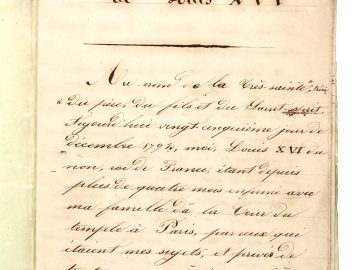 de Louis XVI
Au nom de la très-sainte
du père, du fils et du Saint-esprit.
Aujourd'hui vingt cinquième jour de
décembre 1792, moi, Louis XVI du
nom, roi de France, étant depuis
plus de quatre mois enfermé avec
ma famille dà la Tour du
temple à Paris, par ceux que
étaient mes sujets, et privé de